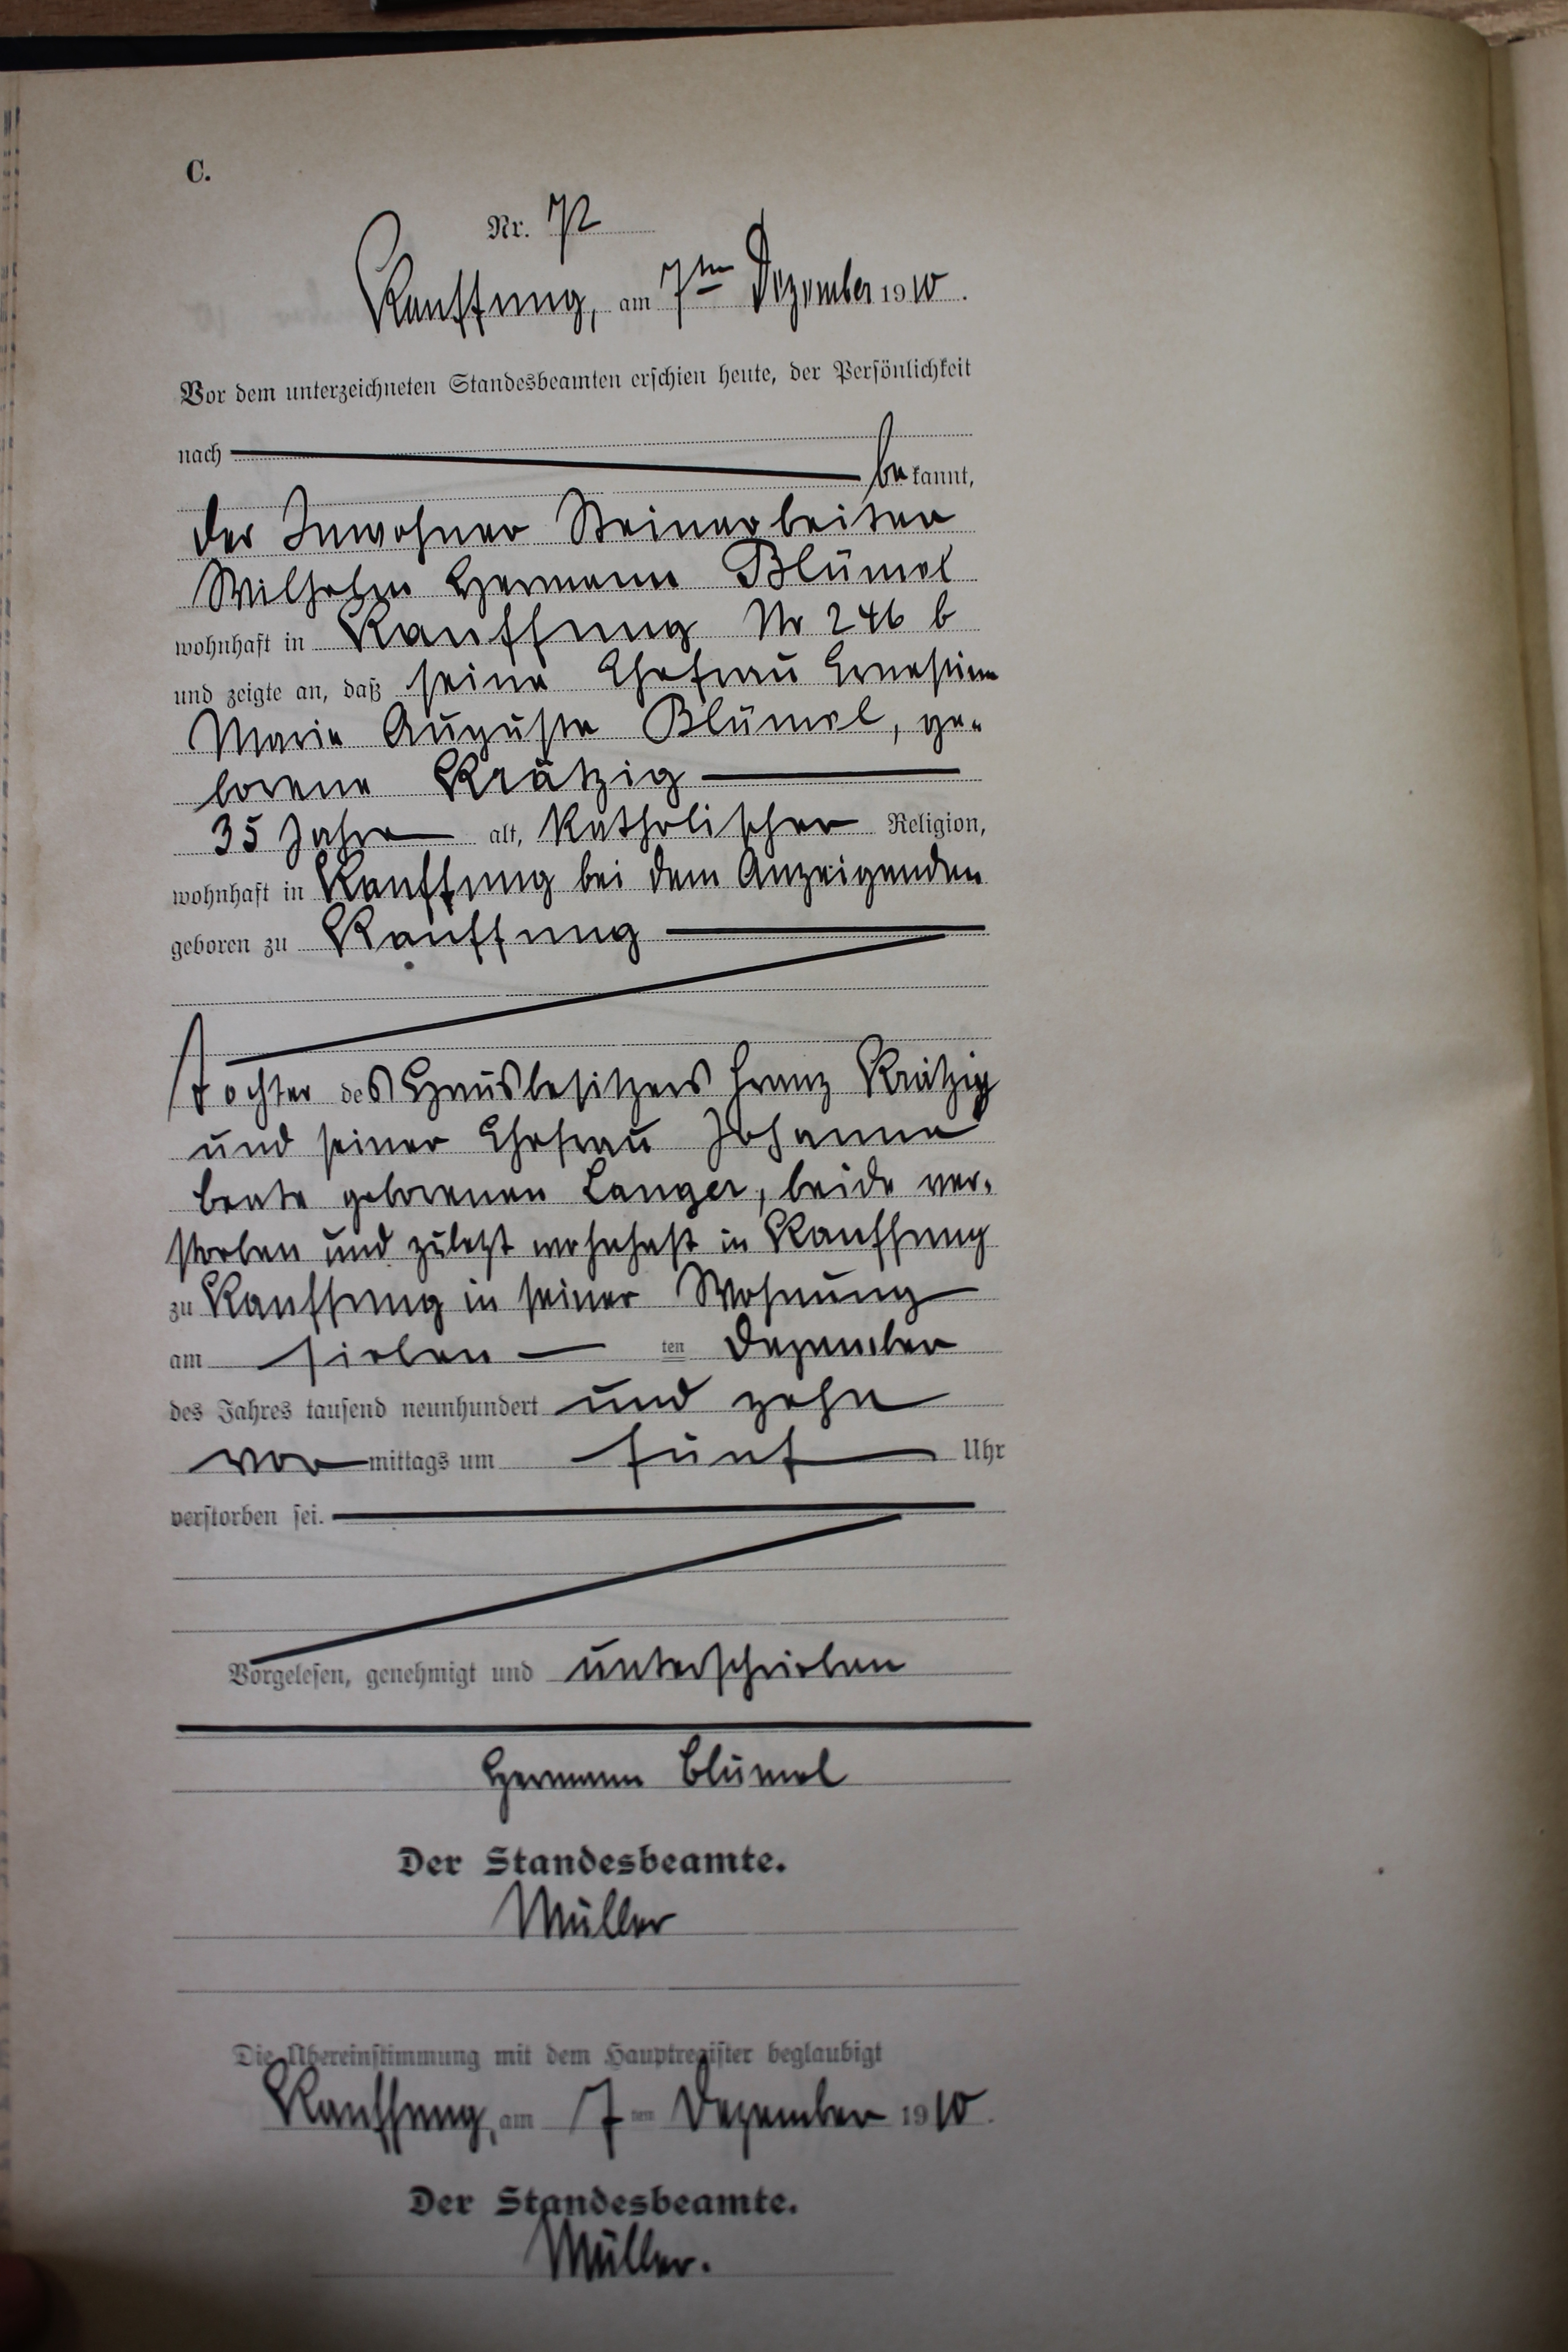 C.
Nr. 72
Kauffung, am 7ten Dezember 1910.
Vor dem unterzeichneten Standesbeamten erschien heute, der Persönlichkeit
nach
bekannt,
der Inwohner Steinarbeiter
Wilhelm Hermann Blümel
wohnhaft in Kauffung Nr 246 b
und zeigte an, daß seine Ehefrau Ernestine
Marie Auguste Blümel, ge-
borene Krätzig
35 Jahre alt, Katholischer Religion,
wohnhaft in Kauffung bei dem Anzeigenden
geboren zu Kauffung
Tochter des Hausbesitzers Franz Krätzig
und seiner Ehefrau Johanne
beate geborenen Langer, beide ver-
storben und zuletzt wohnhaft in Kauffung
zu Kauffung in seiner Wohnung
am sieben ten Dezember
des Jahres tausend neunhundert und zehn
vor mittags um fünf Uhr
verstorben sei.
Vorgelesen, genehmigt und unterschrieben
Hermann Blümel
Der Standesbeamte.
Müller
Die Übereinstimmung mit dem Hauptregister beglaubigt
Kauffung, am 7ten Dezember 1910.
Der Standesbeamte.
Müller.